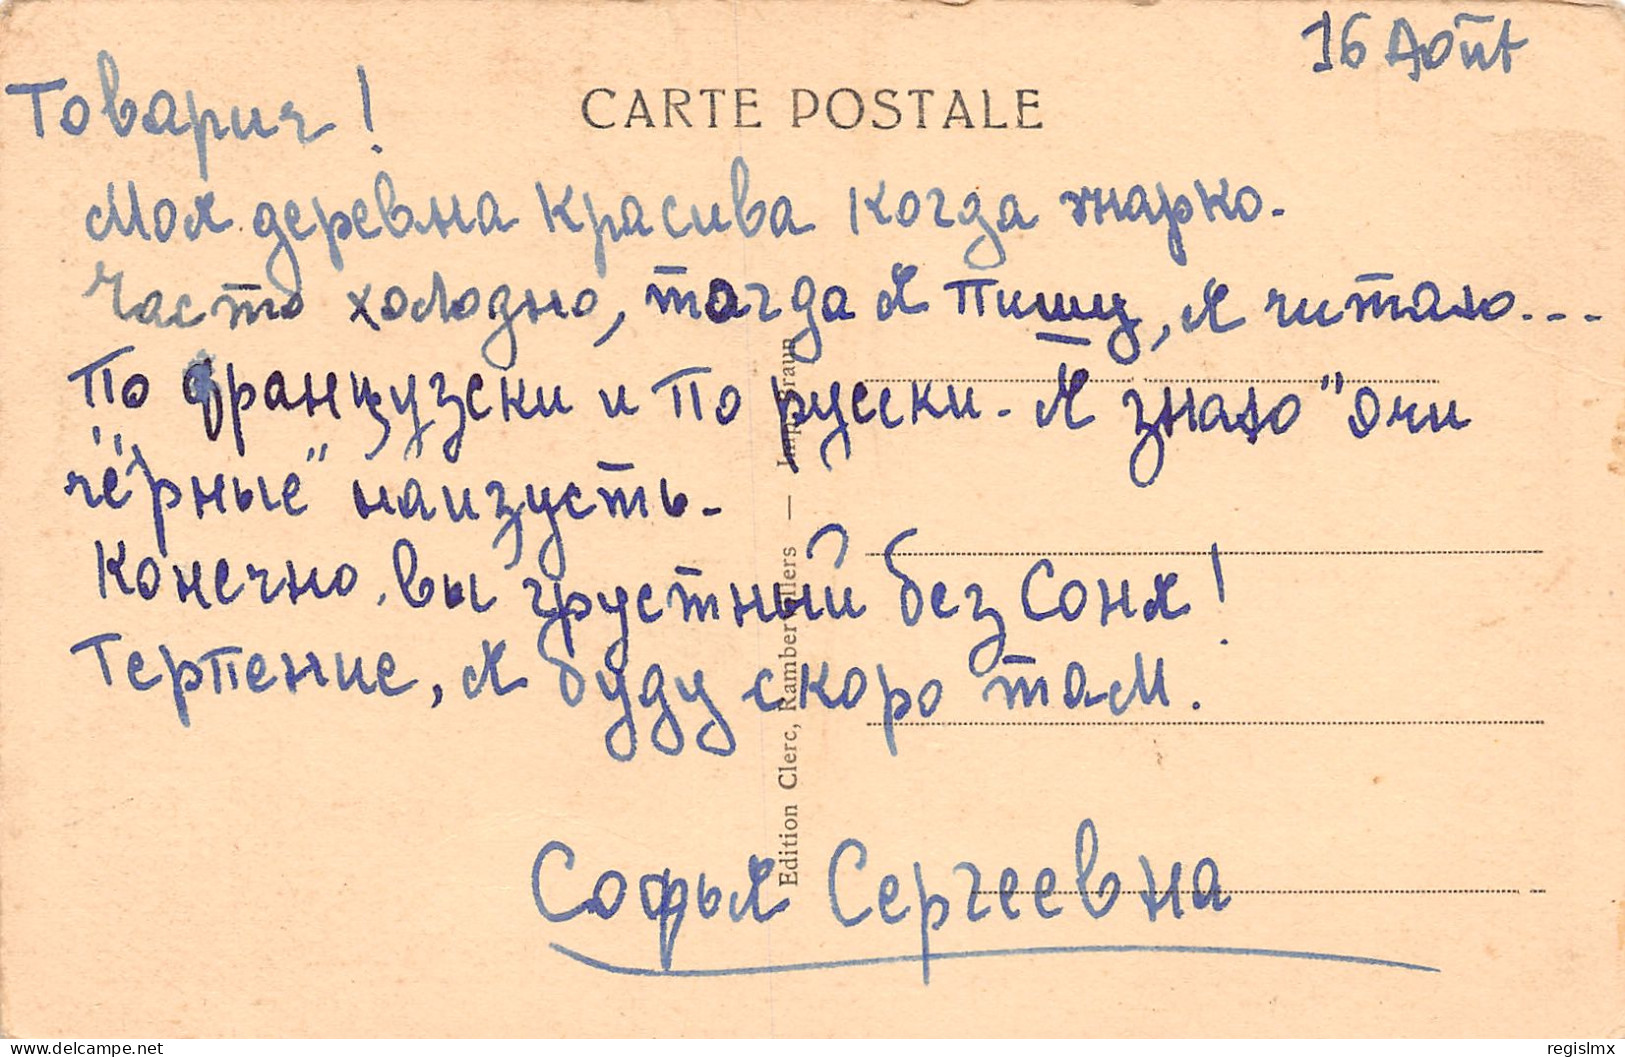 16 Août
CARTE POSTALE
Товарич!
Моя деревна красива когда жарко.
Часто холодно, тогда я пишу, я читаю...
По французски и по русски. Я знаю "очи
чёрные" наизусть.
Конечно, вы грустный без Соня!
Терпение, я буду скоро там.
Софья Сергеевна
Edition Clerc, Rambervillers — Imp. Braun
delcampe.net
regislmx